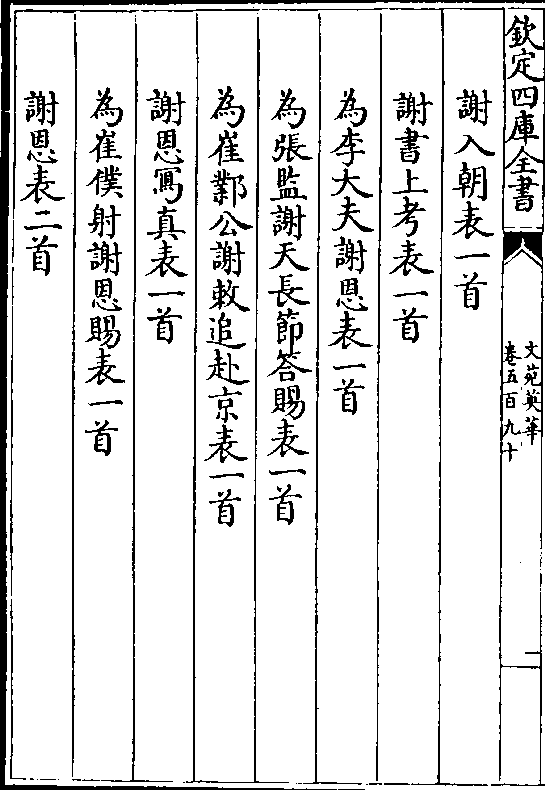 欽定四庫全書
文苑英華
卷五百九十
一
謝入朝表一首
謝書上考表一首
為李大夫謝恩表一首
為張監謝天長節答賜表一首
為崔鄴公謝敕追赴京表一首
謝恩寫真表一首
為崔僕射謝恩賜表一首
謝恩表二首